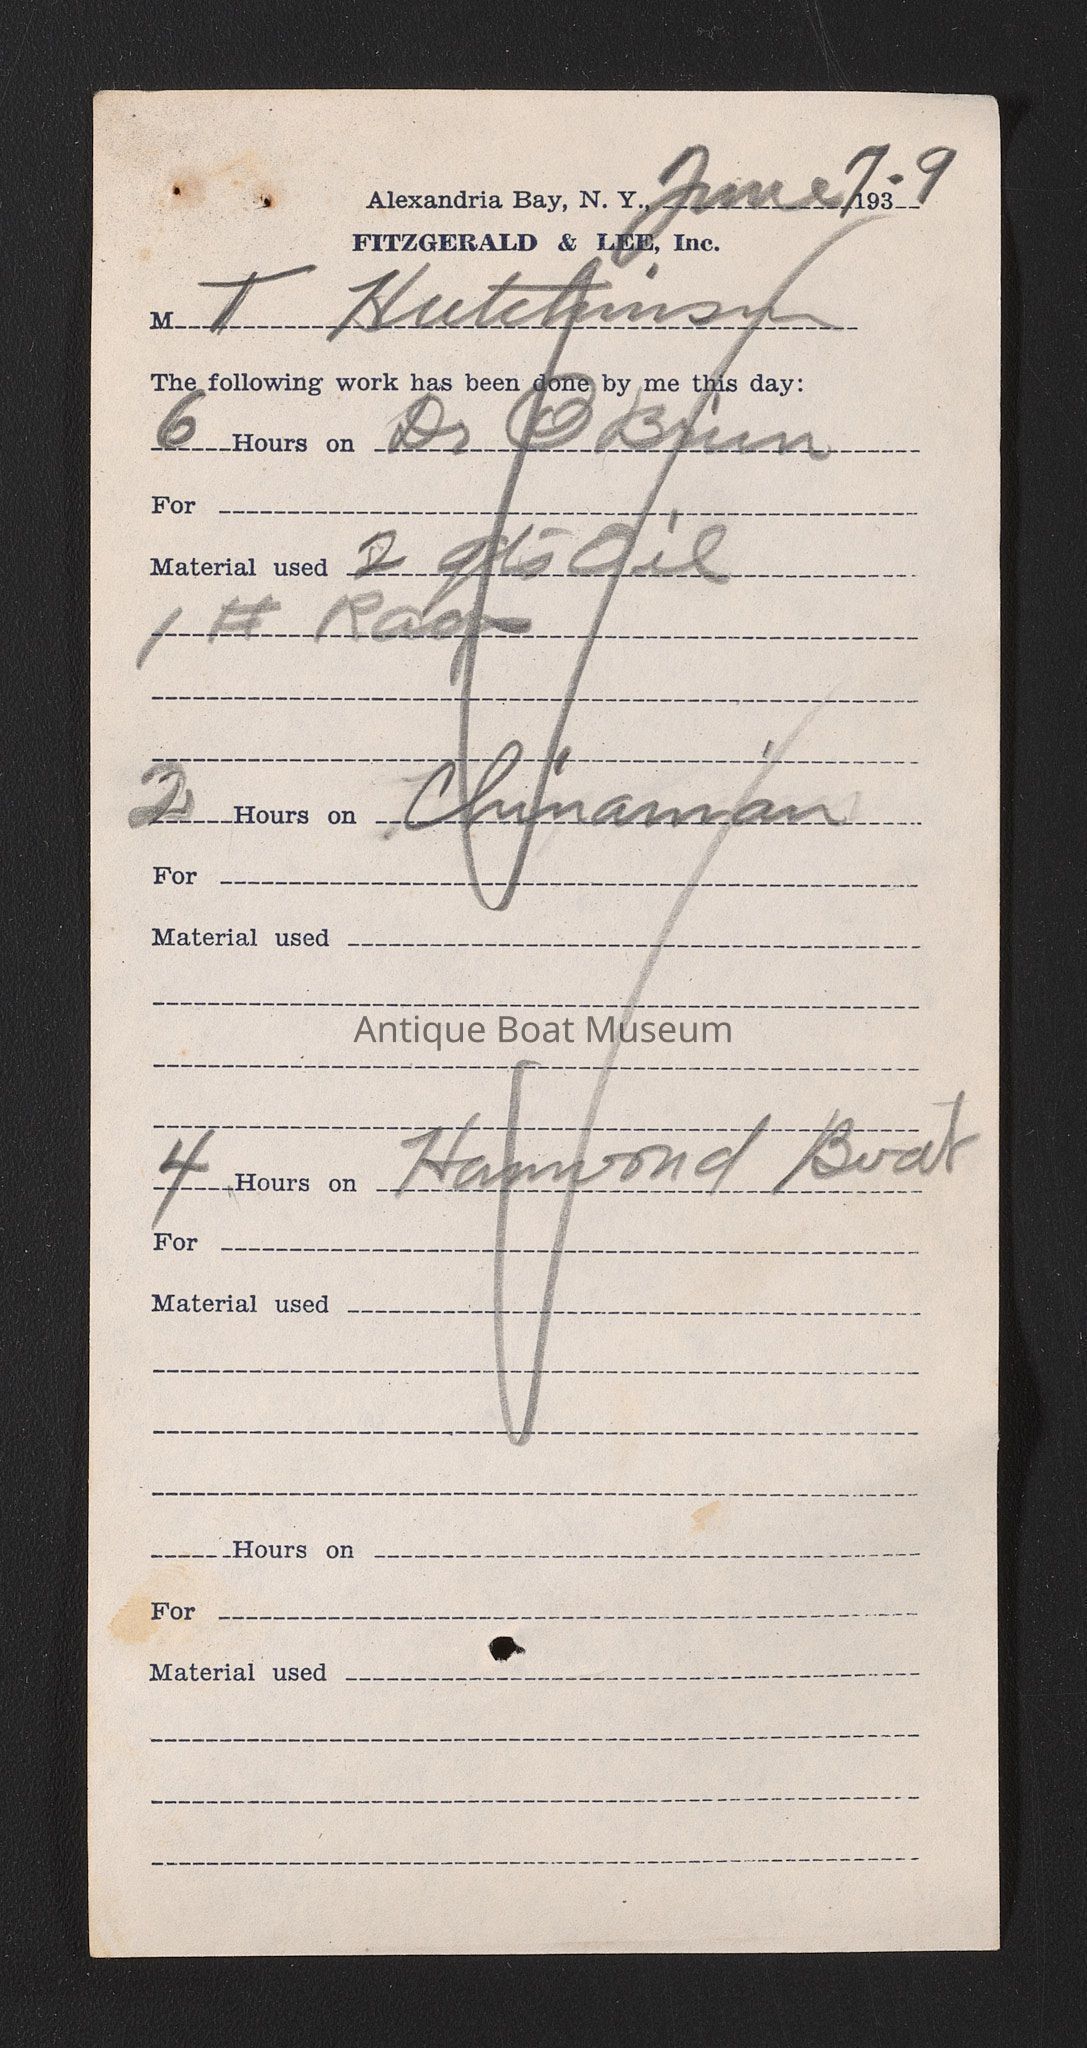 Alexandria Bay, N. Y., June 7 - 1939
FITZGERALD & LEE, Inc.
M T Hutchinson
The following work has been done by me this day:
6 Hours on Dr O Brien
For
Material used 2 qts Oil
1 # Rags
2 Hours on Chinaman
For
Material used
Antique Boat Museum
4 Hours on Hammond Boat
For
Material used
Hours on
For
Material used